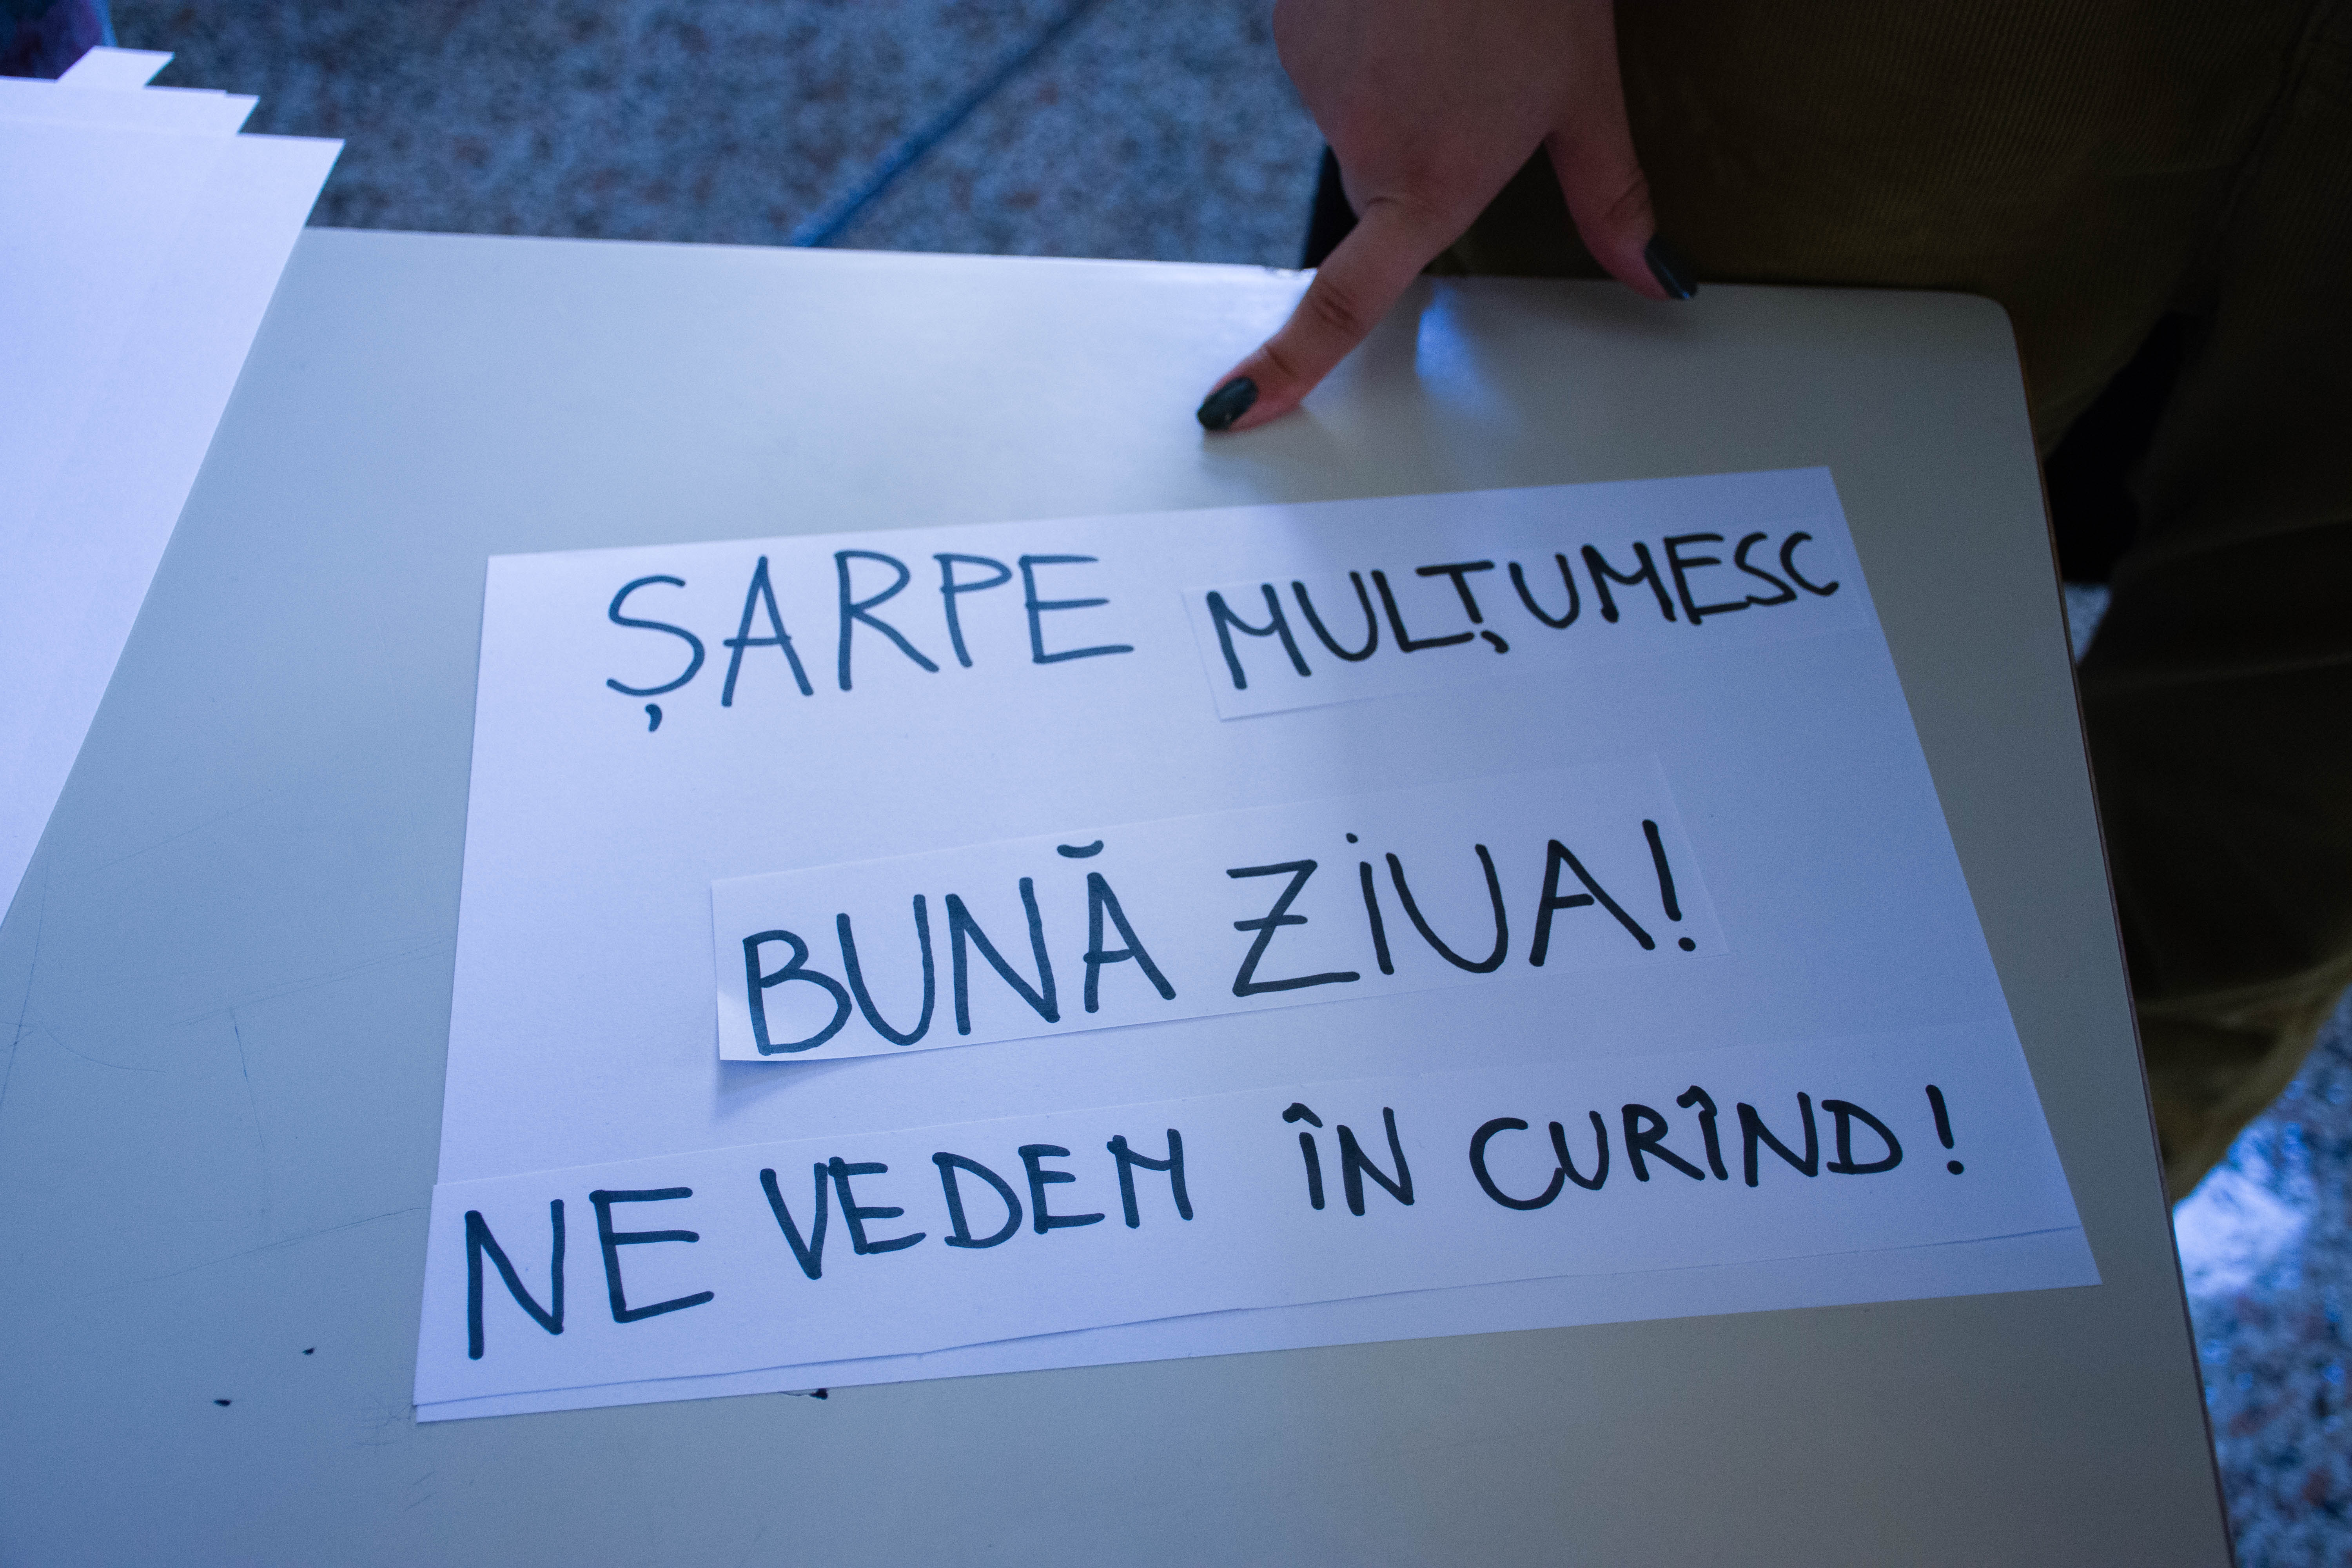 ȘARPE MULȚUMESC
BUNĂ ZIUA!
NE VEDEM ÎN CURÎND!